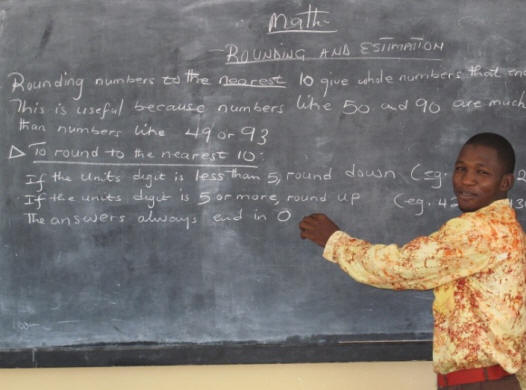 Math
ROUNDING AND ESTIMATION
Rounding numbers to the nearest 10 give whole numbers that
This is useful because numbers like 50 and 90 are much
than numbers like 49 or 93
To round to the nearest 10:
If the units digit is less than 5, round down (eg.
If the units digit is 5 or more, round up (eg. 4
The answers always end in 0